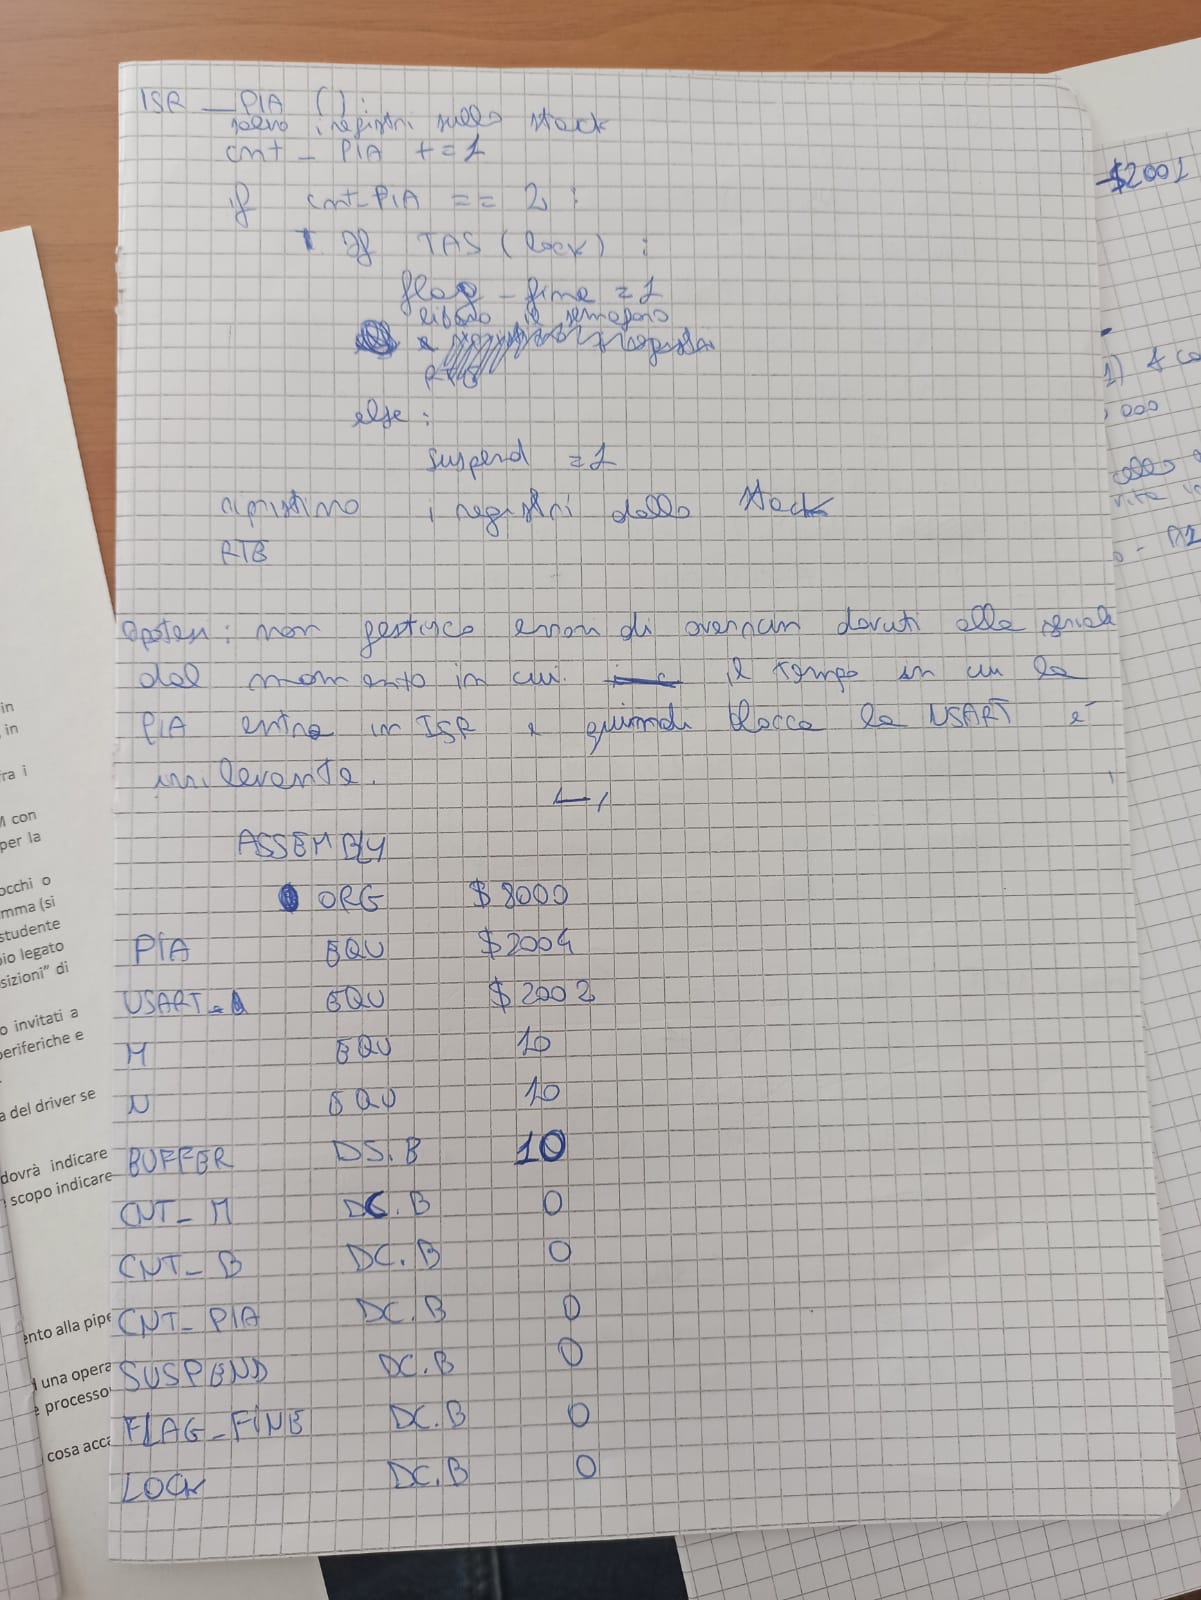 ISR _ PIA ( ) :
salvo i registri sullo stack
cnt _ PIA += 1
if cnt_PIA == 2 :
1. If TAS (lock) :
flag - fine = 1
libero il semaforo
e registri
RTE
else :
suspend = 1
ripristino i registri dallo stack
RTE
Ipotesi : non gestisco errori di overrun dovuti alla seriale
dal momento in cui il tempo in cui la
PIA entra in ISR e quindi blocca la USART è
irrilevante.
ASSEMBLY
ORG $8000
PIA EQU $2004
USART_ EQU $2002
M EQU 10
N EQU 10
BUFFER DS.B 10
CNT_M DC.B 0
CNT_B DC.B 0
CNT_PIA DC.B 0
SUSPEND DC.B 0
FLAG_FINE DC.B 0
LOCK DC.B 0
-$2001
1)
000
in
in
fra i
con
per la
occhi o
mma (si
studente
pio legato
sizioni" di
o invitati a
periferiche e
a del driver se
dovrà indicare
scopo indicare
ento alla pipe
una opera
e processo
cosa acca